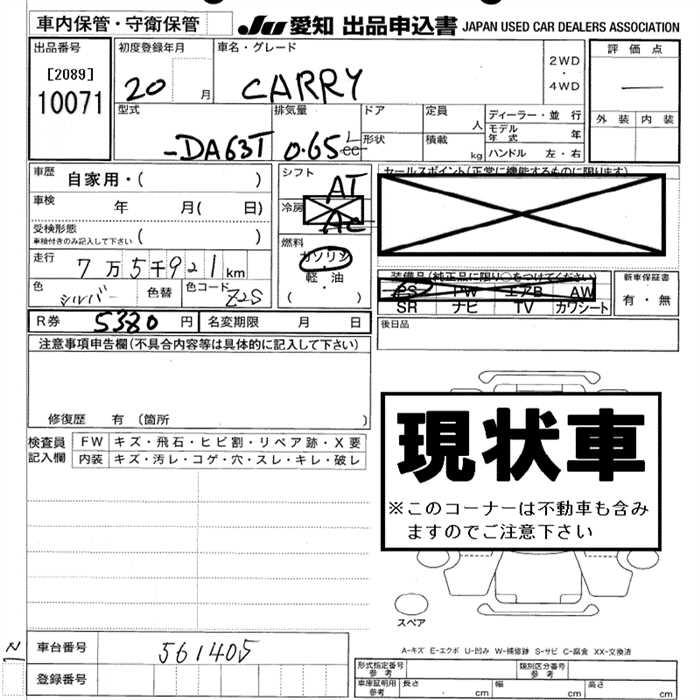 車内保管・守衛保管
JU 愛知 出品申込書 JAPAN USED CAR DEALERS ASSOCIATION
出品番号
[2089]
10071
初度登録年月
20 月
車名・グレード
CARRY
2WD
・
4WD
評価点
—
外装 内装
型式
DA63T
排気量
0.65 L
cc
ドア
形状
定員
人
積載
kg
ディーラー・並 行
モデル年式 年
ハンドル 左・右
車歴
自家用・( )
車検
年 月( 日)
受検形態
車検付きのみ記入して下さい ( )
走行
7万5千921km
色
シルバー
色替
色コード
Z2S
シフト
AT
冷房
AC
燃料
ガソリン
・
軽・油
( )
セールスポイント(正常に機能するものに限ります)
装備品(純正品に限り○をつけてください)
PS PW エアB AW
SR ナビ TV カワシート
新車保証書
有・無
後日品
R券 5380 円
名変期限 月 日
注意事項申告欄(不具合内容等は具体的に記入して下さい)
修復歴 有(箇所 )
検査員
記入欄
FW キズ・飛石・ヒビ割・リペア跡・X要
内装 キズ・汚レ・コゲ・穴・スレ・キレ・破レ
現状車
※このコーナーは不動車も含み
ますのでご注意下さい
スペア
A-キズ E-エクボ U-凹み W-補修跡 S-サビ C-腐食 XX-交換済
N
車台番号
561405
登録番号
形式指定番号
参考
類別区分番号
参考
車庫証明用
参考
長さ cm
幅 cm
高さ cm